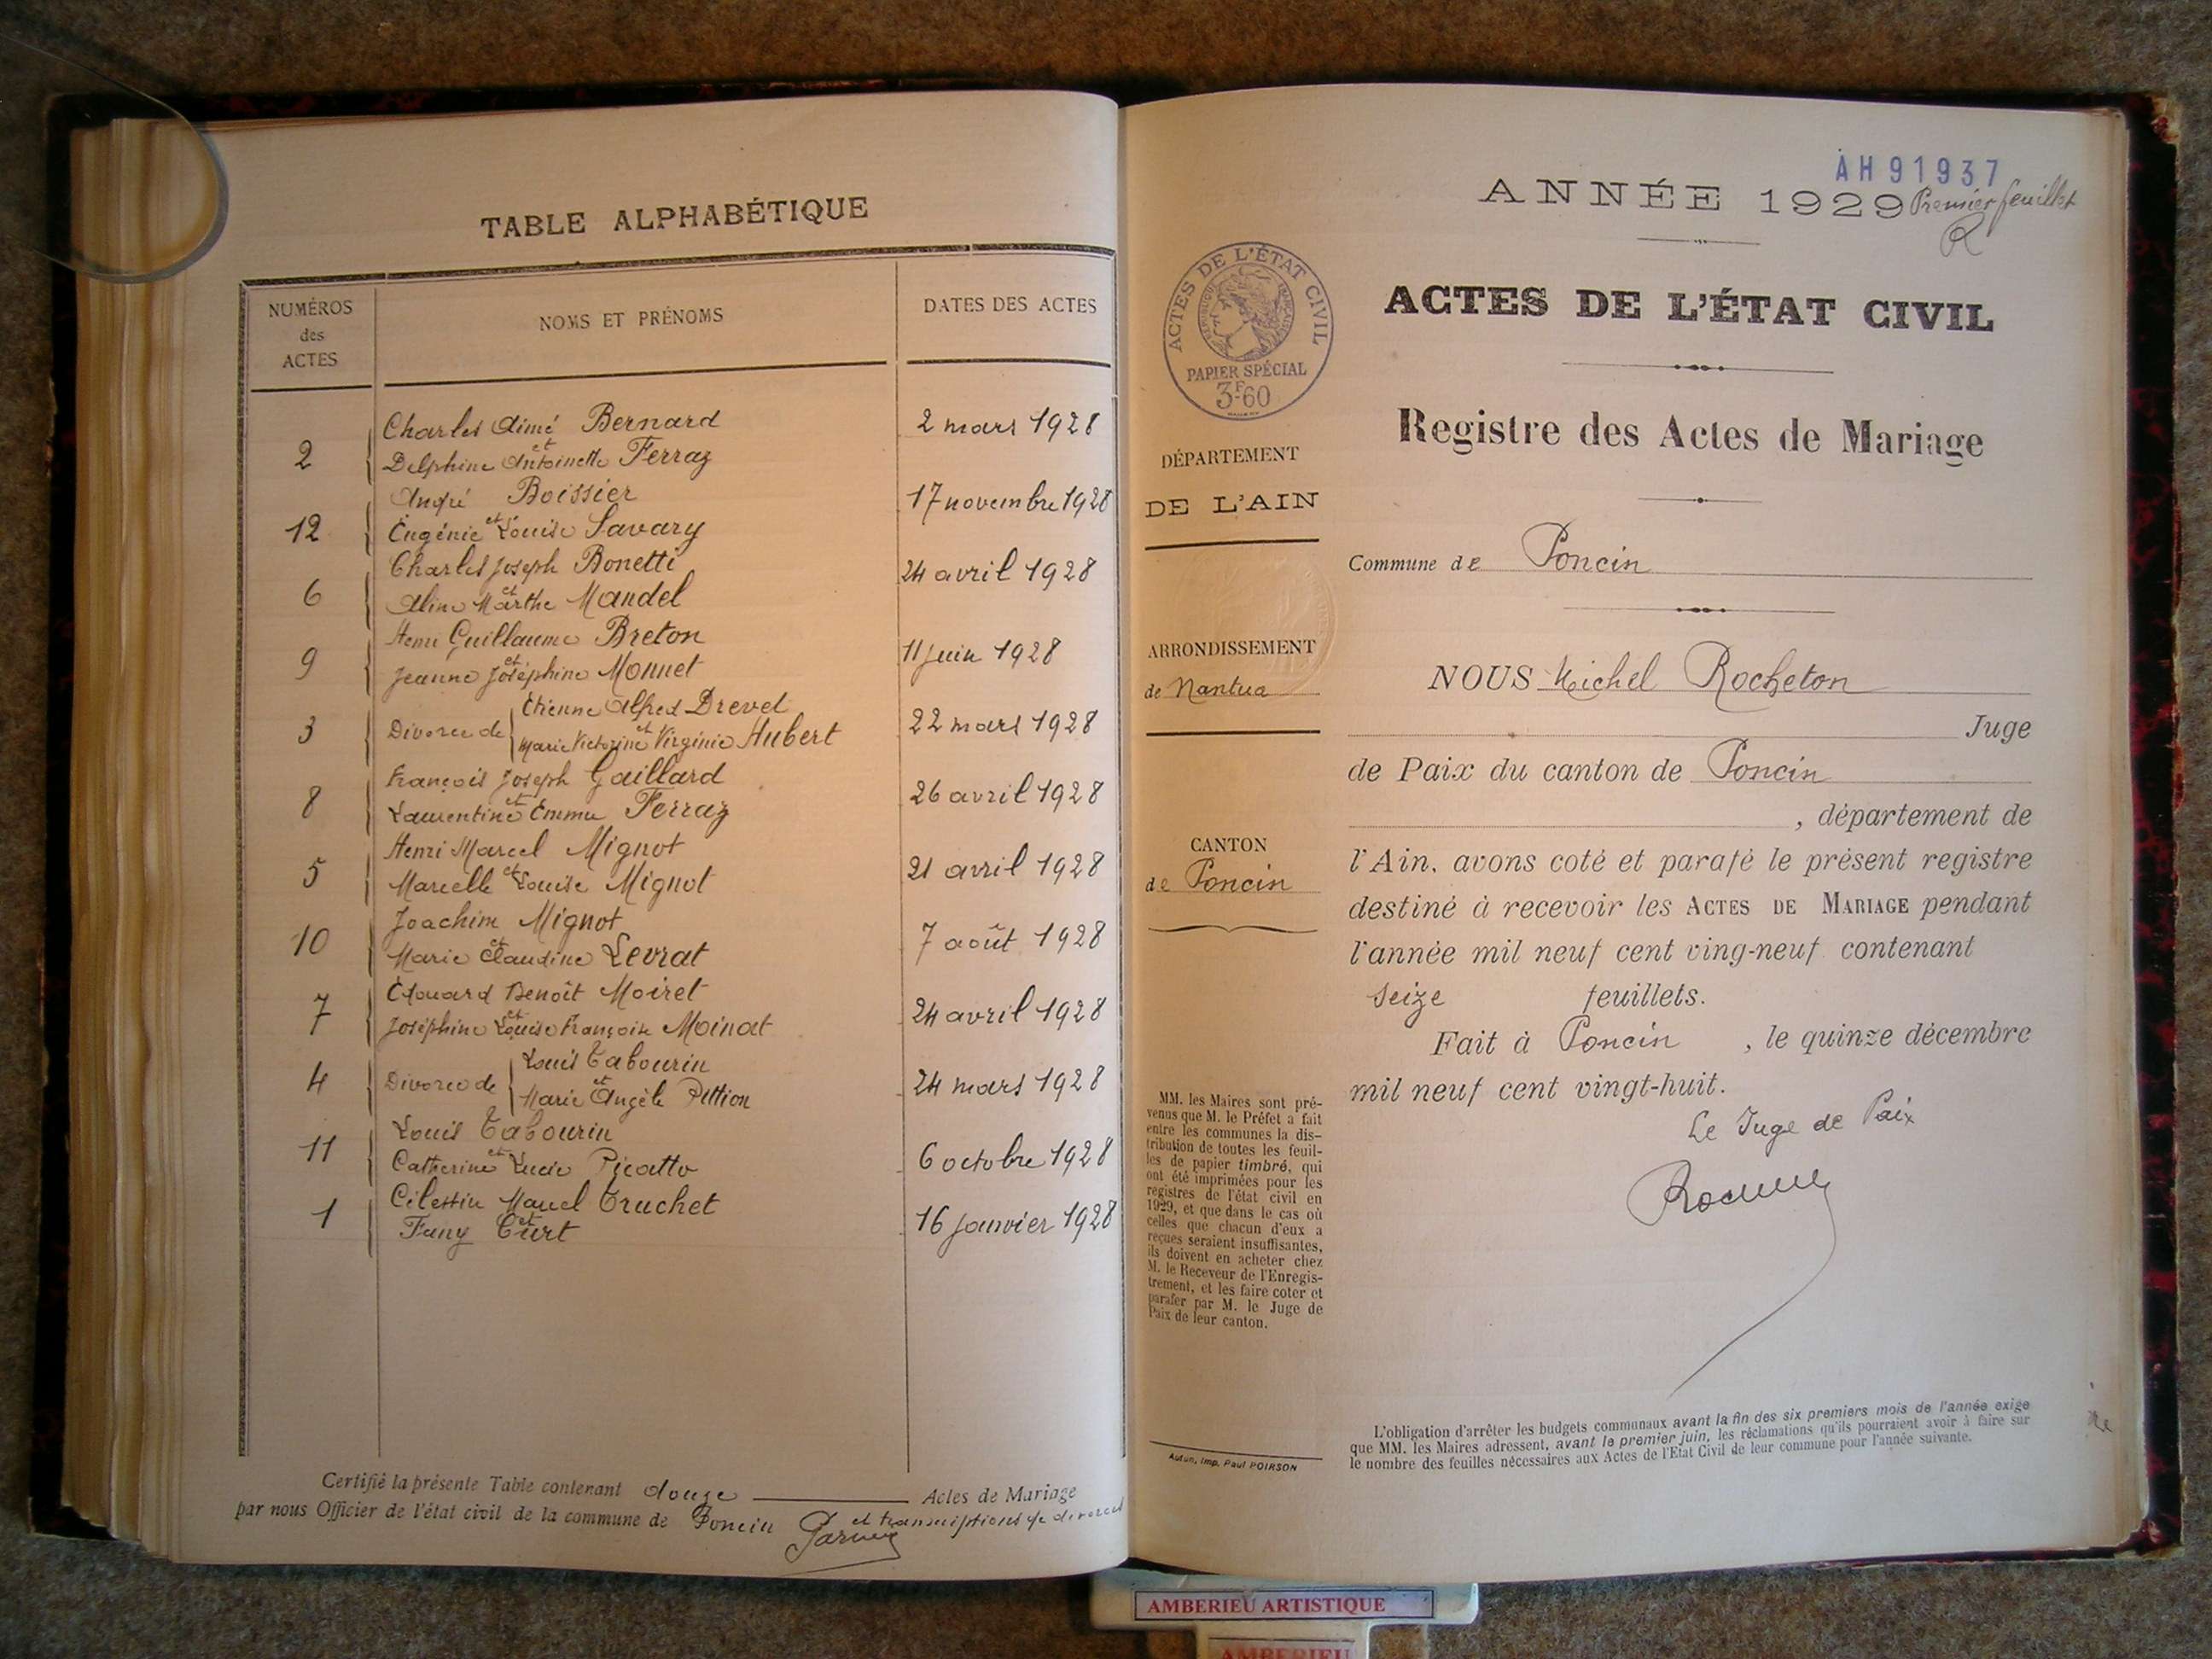 TABLE ALPHABÉTIQUE
NUMÉROS
des
ACTES
NOMS ET PRÉNOMS
DATES DES ACTES
Charles Aimé Bernard 2 mars 1928
2 et
Delphine Antoinette Ferraz
André Boissier 17 novembre 1928
12 et
Eugénie Louise Savary
Charles Joseph Bonetti 24 avril 1928
6 et
Aline Marthe Mandel
Henri Guillaume Breton 11 juin 1928
9 et
Jeanne Joséphine Monnet
Etienne Alfred Drevet
3 Divorce de et 22 mars 1928
Marie Victorine Virginie Hubert
François Joseph Gaillard 26 avril 1928
8 et
Laurentine Emma Ferraz
Henri Marcel Mignot 21 avril 1928
5 et
Marcelle Louise Mignot
Joachim Mignot 7 août 1928
10 et
Marie Claudine Levrat
Édouard Benoît Moiret 24 avril 1928
7 et
Joséphine Louise Françoise Moinat
Louis Tabourin
4 Divorce de et 24 mars 1928
Marie Angèle Pittion
Louis Tabourin 6 octobre 1928
11 et
Catherine Lucie Picatto
Célestin Marcel Truchet 16 janvier 1928
1 et
Fany Curt
Certifié la présente Table contenant douze Actes de Mariage
et transcriptions de divorces
par nous Officier de l'état civil de la commune de Poncin
AH 91937
ANNÉE 1929 Premier feuillet
R
ACTES DE L'ÉTAT CIVIL
RÉPUBLIQUE FRANÇAISE
PAPIER SPÉCIAL
3F.60
ACTES DE L'ÉTAT CIVIL
Registre des Actes de Mariage
DÉPARTEMENT
DE L'AIN
Commune de Poncin
ARRONDISSEMENT
de Nantua
NOUS Michel Rocheton
Juge
de Paix du canton de Poncin
, département de
CANTON
de Poncin
l'Ain, avons coté et parafé le présent registre
destiné à recevoir les ACTES DE MARIAGE pendant
l'année mil neuf cent ving-neuf contenant
seize feuillets.
Fait à Poncin , le quinze décembre
mil neuf cent vingt-huit.
Le Juge de Paix
MM. les Maires sont pré-
venus que M. le Préfet a fait
entre les communes la dis-
tribution de toutes les feuil-
les de papier timbré, qui
ont été imprimées pour les
registres de l'état civil en
1929, et que dans le cas où
celles que chacun d'eux a
reçues seraient insuffisantes,
ils doivent en acheter chez
M. le Receveur de l'Enregis-
trement, et les faire coter et
parafer par M. le Juge de
Paix de leur canton.
Autun, Imp. Paul POIRSON
L'obligation d'arrêter les budgets communaux avant la fin des six premiers mois de l'année exige
que MM. les Maires adressent, avant le premier juin, les réclamations qu'ils pourraient avoir à faire sur
le nombre des feuilles nécessaires aux Actes de l'Etat Civil de leur commune pour l'année suivante.
AMBERIEU ARTISTIQUE
AMBERIEU